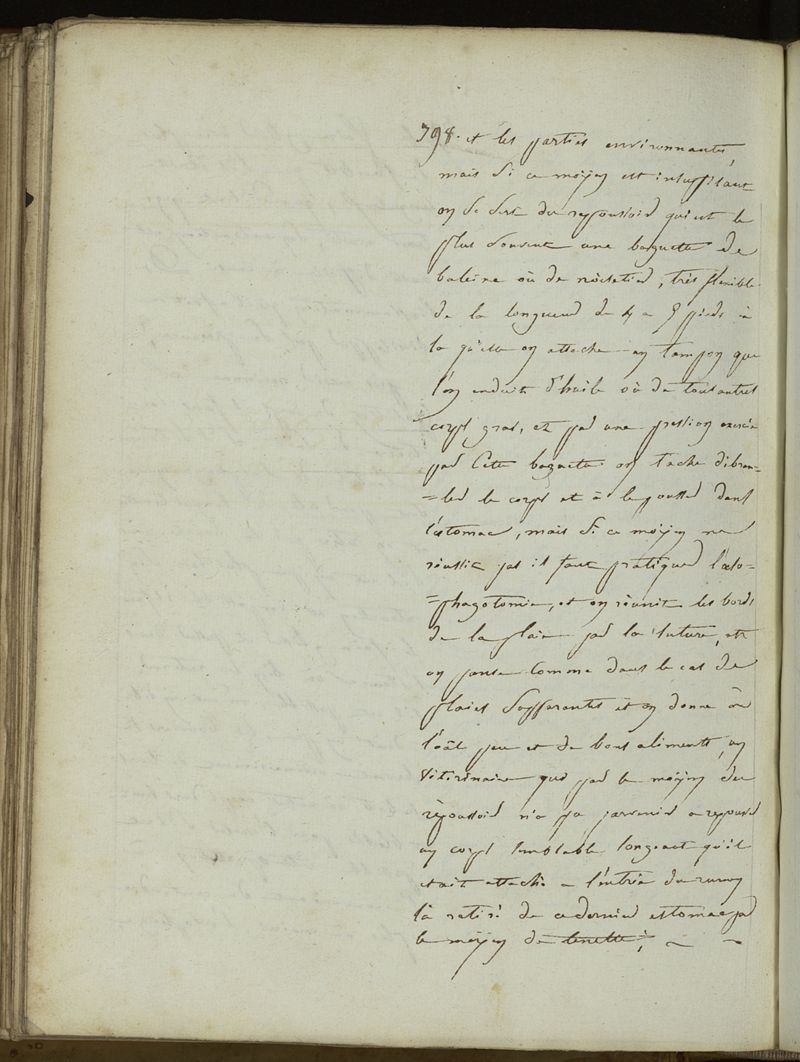 798. et les parties environnantes,
mais si ce moÿen est insuffisant
on se sert du repoussoir qui est le
plus souvent une baguette de
baleine où de, très flexible
de la longueur de 4 a 5 pieds à
la qu'elle on attache un tampon que
l'on enduit d'huile où de tout autres
corps gras, et par une pression exercée
par cette baguette on tache d'ébran=
=ler le corps et à le pousser dans
l'éstomac, mais si ce moÿen ne
réussit pas il faut pratiquer l'œso=
=phagotomie, et on réunit les bords
de la plaie par la suture, et
on panse comme dans le cas de
plaies et on donne à
peu et de bons aliments, un
vétérinaire qui par le moÿen du
repoussoir n'a pu parvenir a repousser
un corps semblable qu'il
etait attaché a l'entrée du rumen
l'à retiré de ce dernier estomac par
le moÿen de tenette; ~ ~